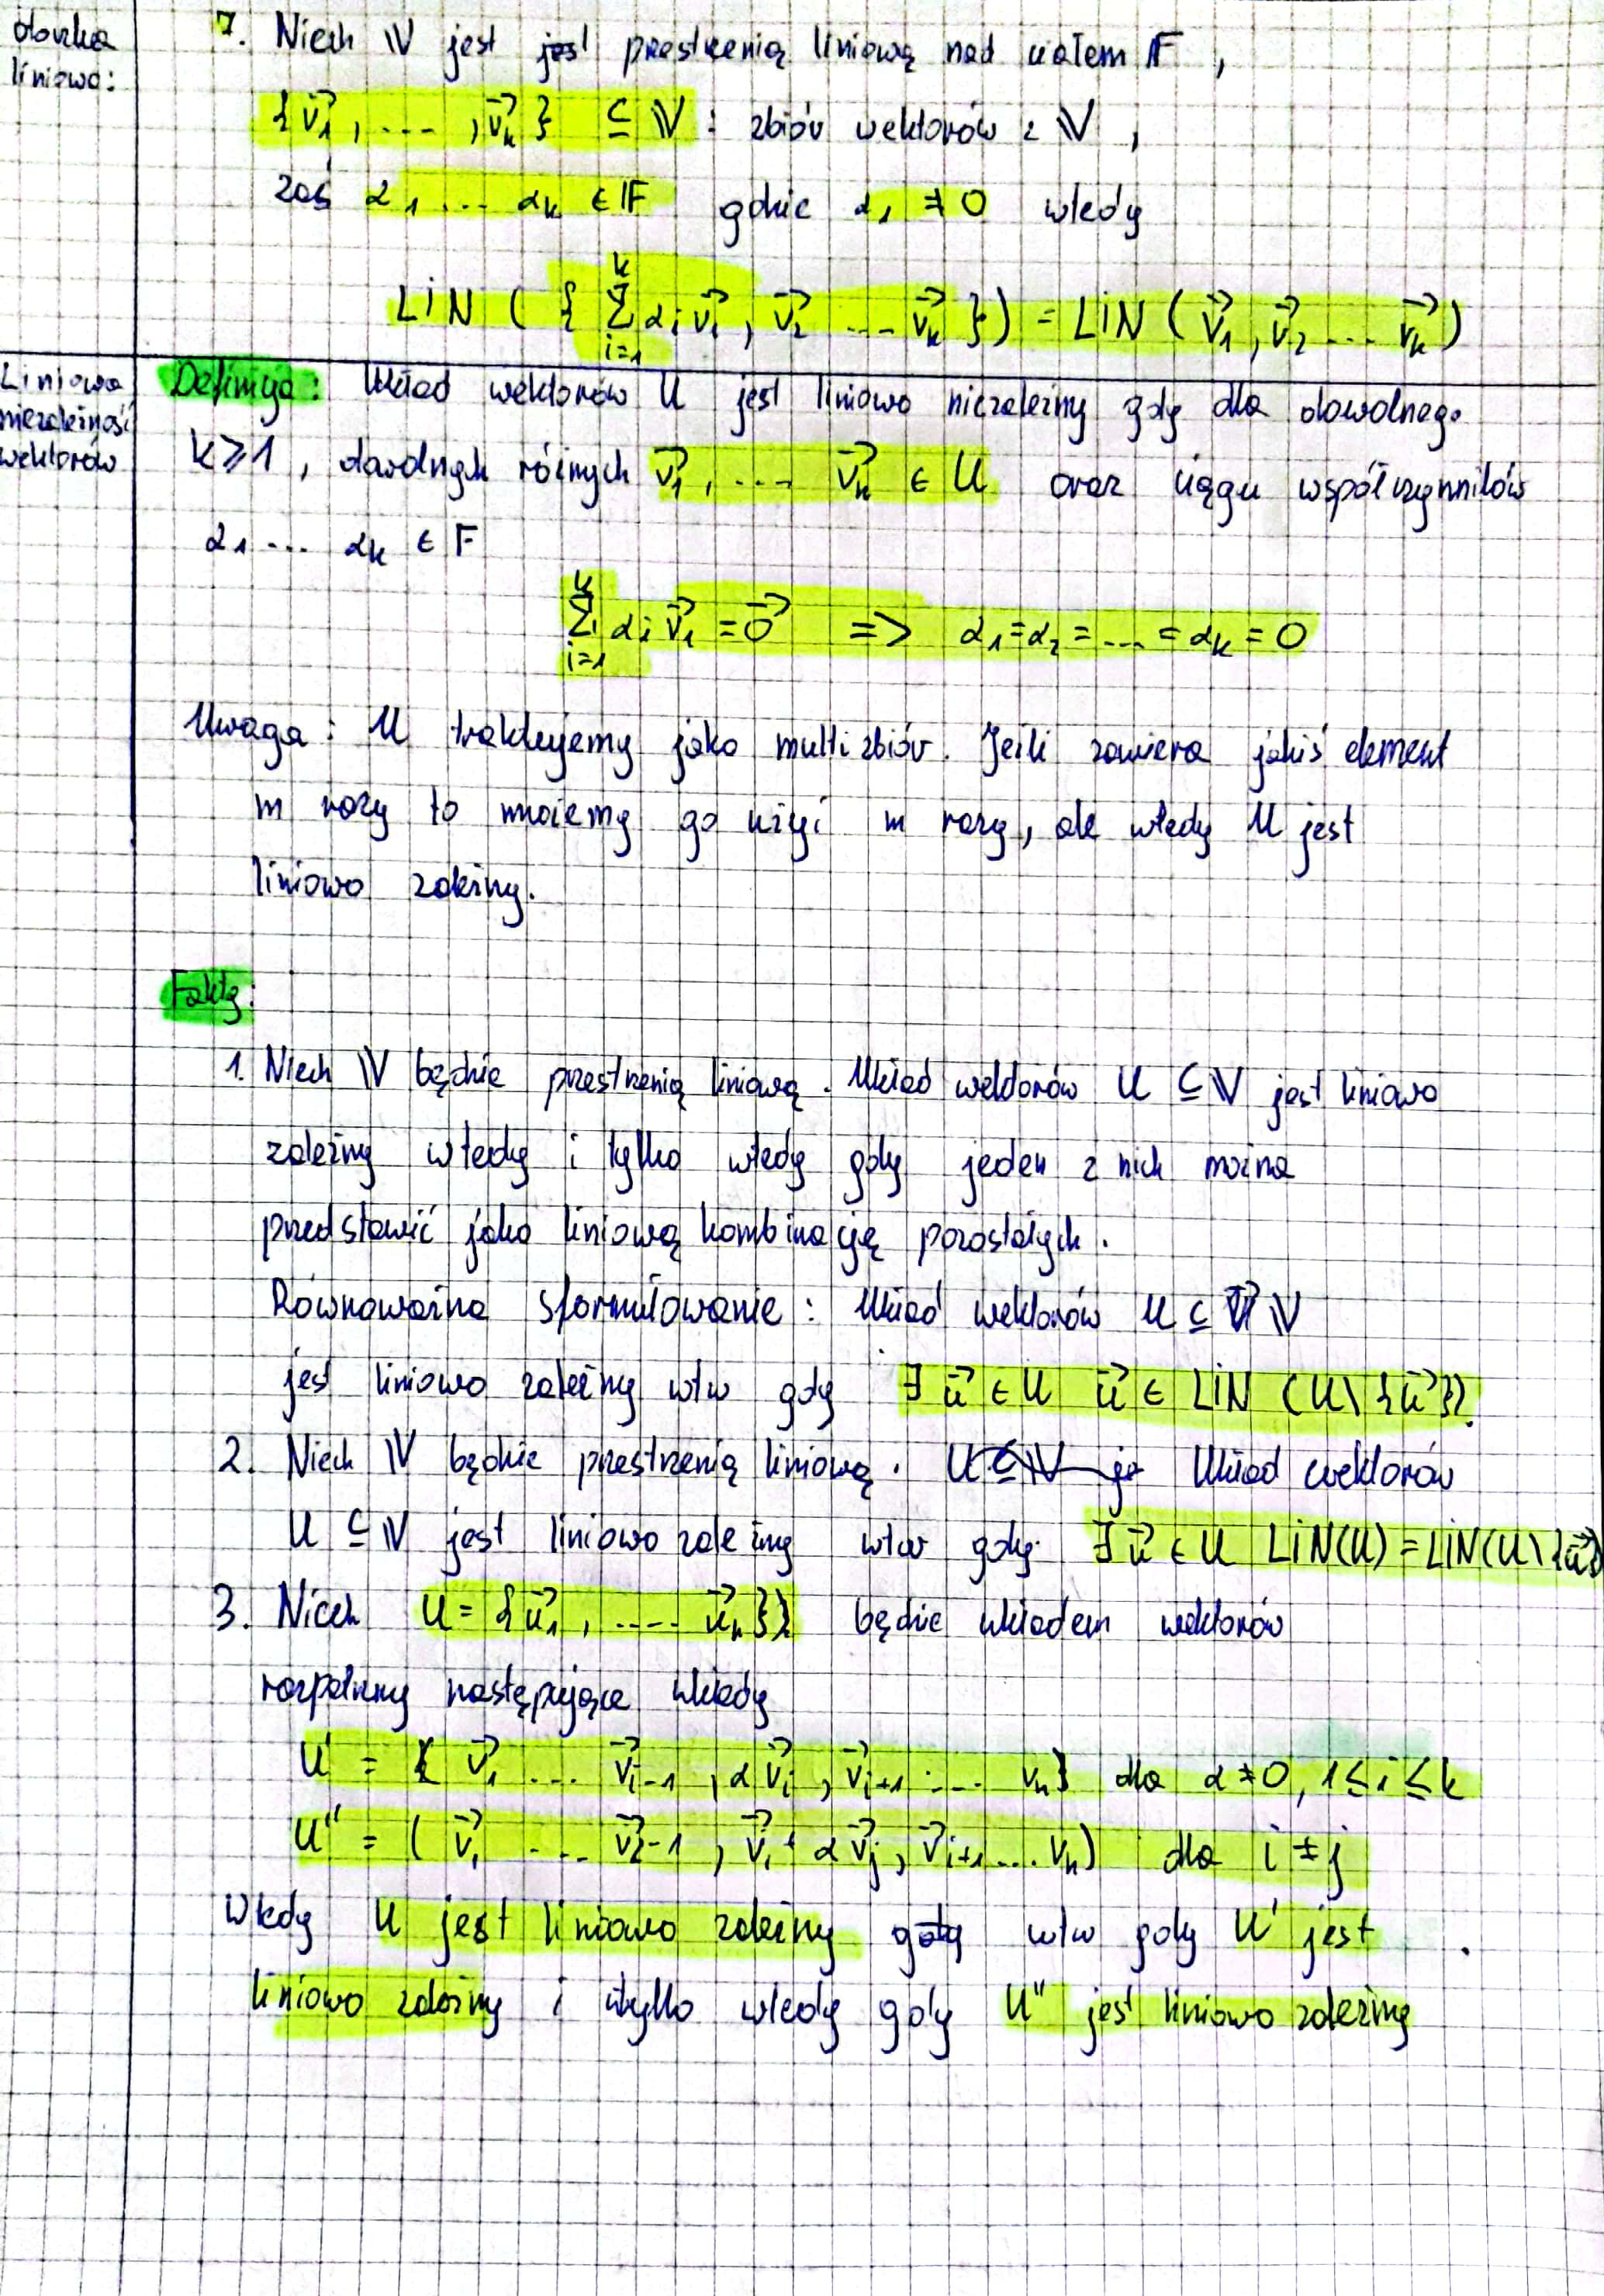 otoczka
liniowa:
7. Niech V jest jest przestrzenią liniową nad ciałem F,
{v⃗1, ..., v⃗k} ⊆ V : zbiór wektorów z V,
zaś α1 ... αk ∈ F gdzie α1 ≠ 0 wtedy
LIN ({ ∑_{i=1}^{k} αi v⃗i, v⃗2 ... v⃗k }) = LIN (v⃗1, v⃗2 ... v⃗k)
Liniowa
niezależność
wektorów
Definicja: Układ wektorów U jest liniowo niezależny gdy dla dowolnego
k ≥ 1, dowolnych różnych v⃗1, ... v⃗k ∈ U oraz ciągu współczynników
α1 ... αk ∈ F
∑_{i=1}^{k} αi v⃗1 = 0⃗ => α1 = α2 = ... = αk = 0
Uwaga: U traktujemy jako multizbiór. Jeśli zawiera jakiś element
m razy to możemy go użyć m razy, ale wtedy U jest
liniowo zależny.
Fakty:
1. Niech V będzie przestrzenią liniową. Układ wektorów U ⊆ V jest liniowo
zależny wtedy i tylko wtedy gdy jeden z nich można
przedstawić jako liniową kombinację pozostałych.
Równoważne sformułowanie: Układ wektorów U ⊆ V
jest liniowo zależny wtw gdy ∃ u⃗ ∈ U u⃗ ∈ LIN (U\{u⃗}).
2. Niech V będzie przestrzenią liniową. U ⊆ V je Układ wektorów
U ⊆ V jest liniowo zależny wtw gdy ∃ u⃗ ∈ U LIN(U) = LIN(U\{u⃗})
3. Niech U = {u⃗1, .... u⃗k}} będzie układem wektorów
rozpatrzmy następujące układy
U' = { v⃗1 ... v⃗i-1, α v⃗i, v⃗i+1 ... vk} dla α ≠ 0, 1 ≤ i ≤ k
U'' = ( v⃗1 ... v⃗i-1, v⃗i + α v⃗j, v⃗i+1 ... vk) dla i ≠ j
Wtedy U jest liniowo zależny gdy wtw gdy U' jest
liniowo zależny i tylko wtedy gdy U'' jest liniowo zależny